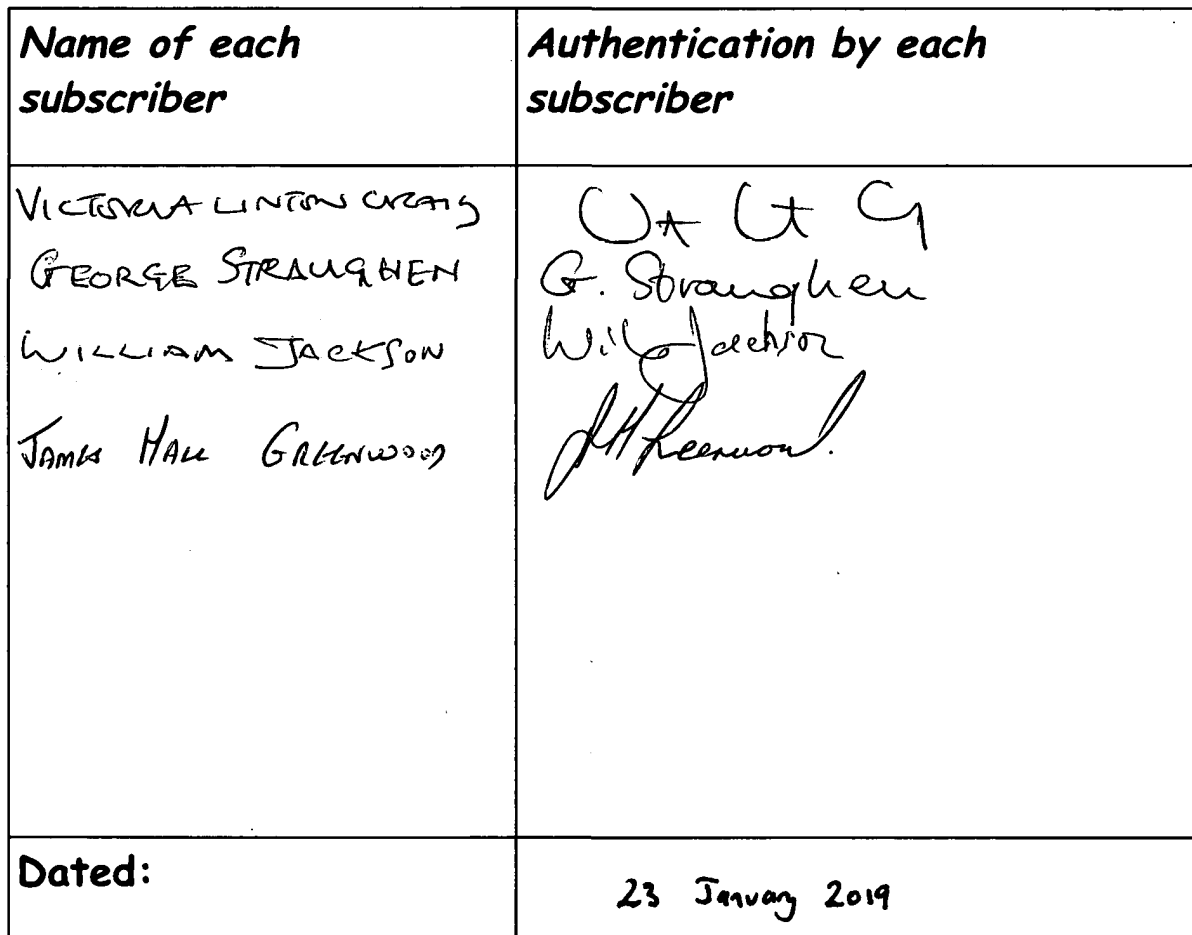 Name of each
subscriber
Authentication by each
subscriber
VICTORIA LINTON CRAIG
GEORGE STRAUGHEN
G. Straughen
WILLIAM JACKSON
Will Jackson
JAMES HALL GREENWOOD
JHGreenwood.
Dated:
23 January 2019